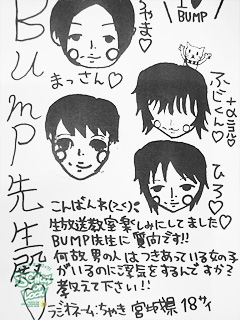 BUMP先生殿♡
ちゃま♡
I♡
BUMP
まっさん♡
ふじくん♡
ひろ♡
こんばんわ(>ε<)♡
生放送教室楽しみにしてました♡
BUMP先生に質問です!!
何故男の人はつきあっている女の子
がいるのに浮気をするんですか?
教えて下さい!!
ラジオネーム:ちゃき 宮城県 18サイ